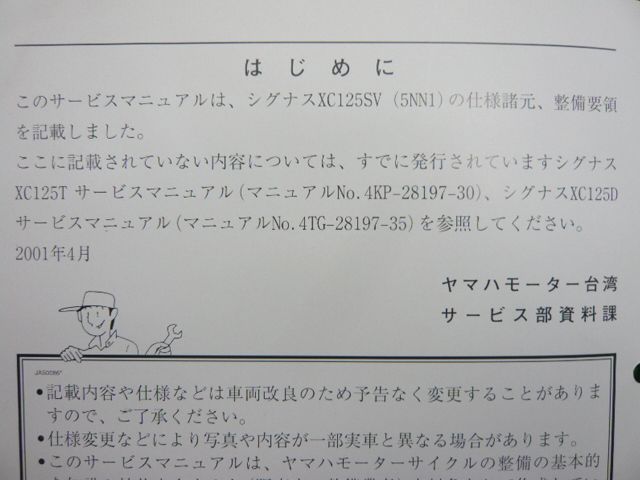 はじめに
このサービスマニュアルは、シグナスXC125SV (5NN1) の仕様諸元、整備要領
を記載しました。
ここに記載されていない内容については、すでに発行されていますシグナス
XC125T サービスマニュアル (マニュアルNo.4KP-28197-30)、シグナスXC125D
サービスマニュアル (マニュアルNo.4TG-28197-35) を参照してください。
2001年4月
ヤマハモーター台湾
サービス部資料課
•記載内容や仕様などは車両改良のため予告なく変更することがありま
すので、ご了承ください。
•仕様変更などにより写真や内容が一部実車と異なる場合があります。
•このサービスマニュアルは、ヤマハモーターサイクルの整備の基本的